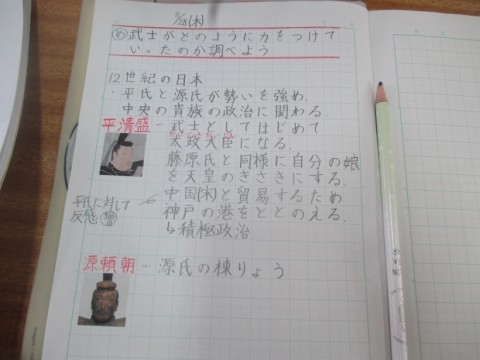 (木)
め 武士がどのように力をつけて
いったのか調べよう
12世紀の日本
・平氏と源氏が勢いを強め、
中央の貴族の政治に関わる。
平清盛…武士としてはじめて
太政大臣になる。
藤原氏と同様に自分の娘
を天皇のきさきにする。
中国(宋)と貿易するため
神戸の港をととのえる。
↳積極政治
平氏に対して
反感
源頼朝…源氏の棟りょう